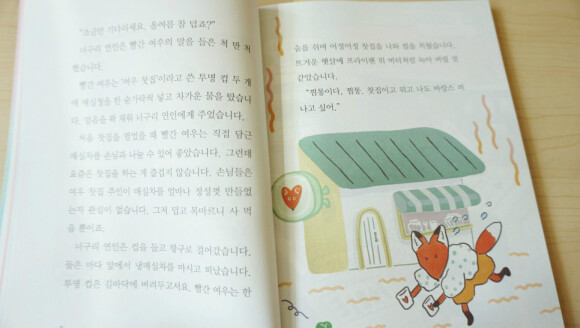 "조금만 기다리세요. 올여름 참 덥죠?"
너구리 연인은 빨간 여우의 말을 들은 척 만 척
했습니다.
빨간 여우는 '여우 찻집'이라고 쓴 투명 컵 두 개
에 매실청을 한 숟가락씩 넣고 차가운 물을 탔습니
다. 얼음을 꽉 채워 너구리 연인에게 주었습니다.
처음 찻집을 열었을 때 빨간 여우는 직접 담근
매실차를 손님과 나눌 수 있어 좋았습니다. 그런데
요즘은 찻집을 하는 게 즐겁지 않습니다. 손님들은
여우 찻집 주인이 매실차를 얼마나 정성껏 만들었
는지 관심이 없습니다. 그저 덥고 목마르니 사 먹
을 뿐이죠.
너구리 연인은 컵을 들고 항구로 걸어갔습니다.
둘은 바다 앞에서 냉매실차를 마시고 떠났습니다.
투명 컵은 길바닥에 버려두고서요. 빨간 여우는 한
숨을 쉬며 어정어정 찻집을 나와 컵을 치웠습니다.
뜨거운 햇살에 프라이팬 위 버터처럼 녹아 버릴 것
같았습니다.
"찜통이다, 찜통. 찻집이고 뭐고 나도 바캉스 떠
나고 싶어."